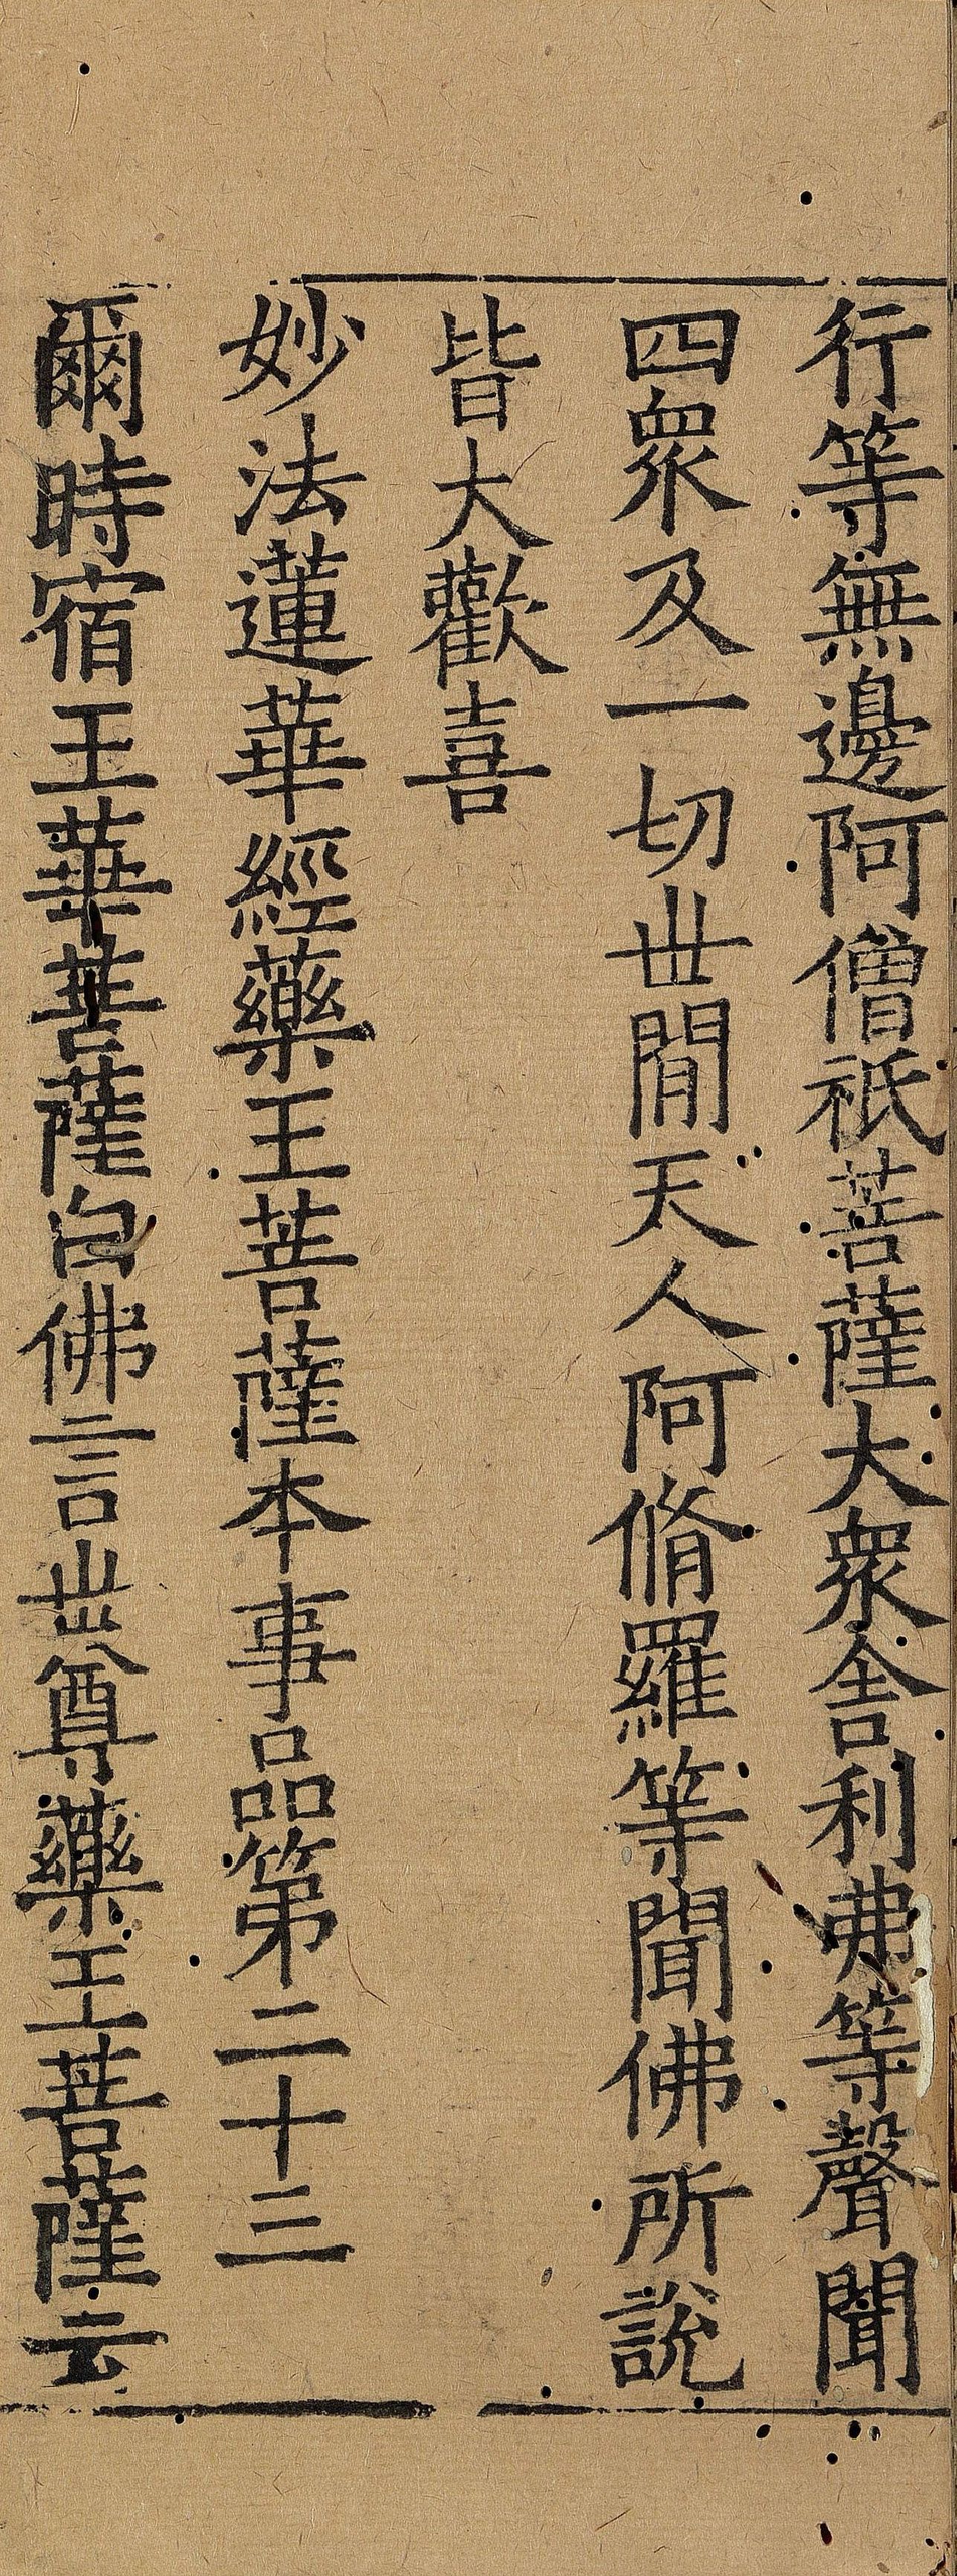 行等無邊阿僧祇菩薩大衆舍利弗等聲聞
四衆及一切世閒天人阿脩羅等聞佛所說
皆大歡喜
妙法蓮華經藥王菩薩本事品第二十三
爾時宿王華菩薩白佛言世尊藥王菩薩云